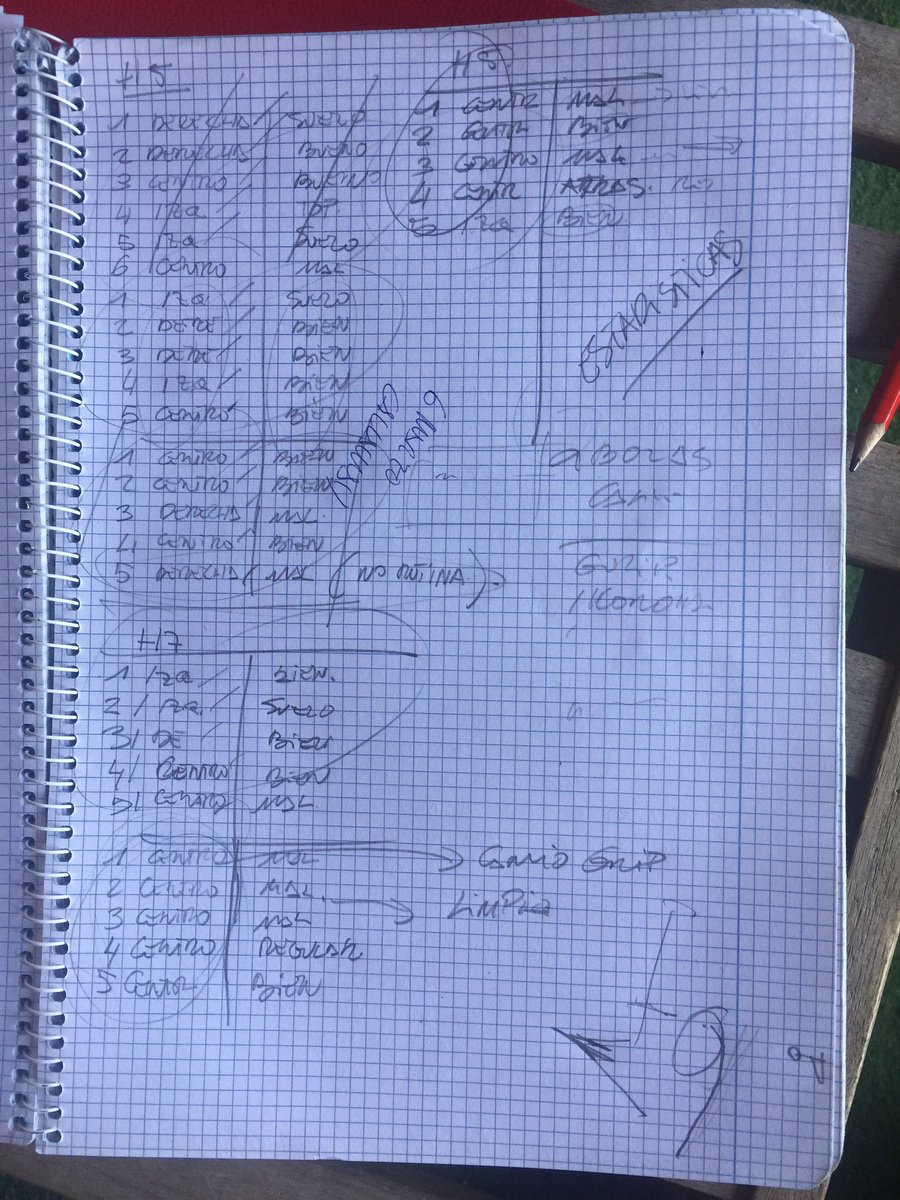 H5
1 DERECHA / SUELO
2 DERECHA / BUENO
3 CENTRO / BUENO
4 IZQ /
5 IZQ / SUELO
6 CENTRO MAL
1 IZQ / SUELO
2 DERE / BIEN
3 DERE / BIEN
4 IZQ / BIEN
5 CENTRO BIEN
1 CENTRO BIEN
2 CENTRO BIEN
3 DERECHA MAL
4 CENTRO BIEN
5 DERECHA MAL (NO RUTINA)
H7
1 IZQ / BIEN.
2 / IZQ. / SUELO
3 / DE BIEN
4 / CENTRO BIEN
5 / CENTRO MAL
1 CENTRO MAL → CAMBIO GRIP
2 CENTRO MAL. → LIMPIA
3 CENTRO MAL
4 CENTRO REGULAR
5 CENTR BIEN
H8
1 CENTR MAL
2 CENTR BIEN
3 CENTRO MAL
4 CENTR ATRAS.
5 IZQ BIEN
ESTADISTICAS